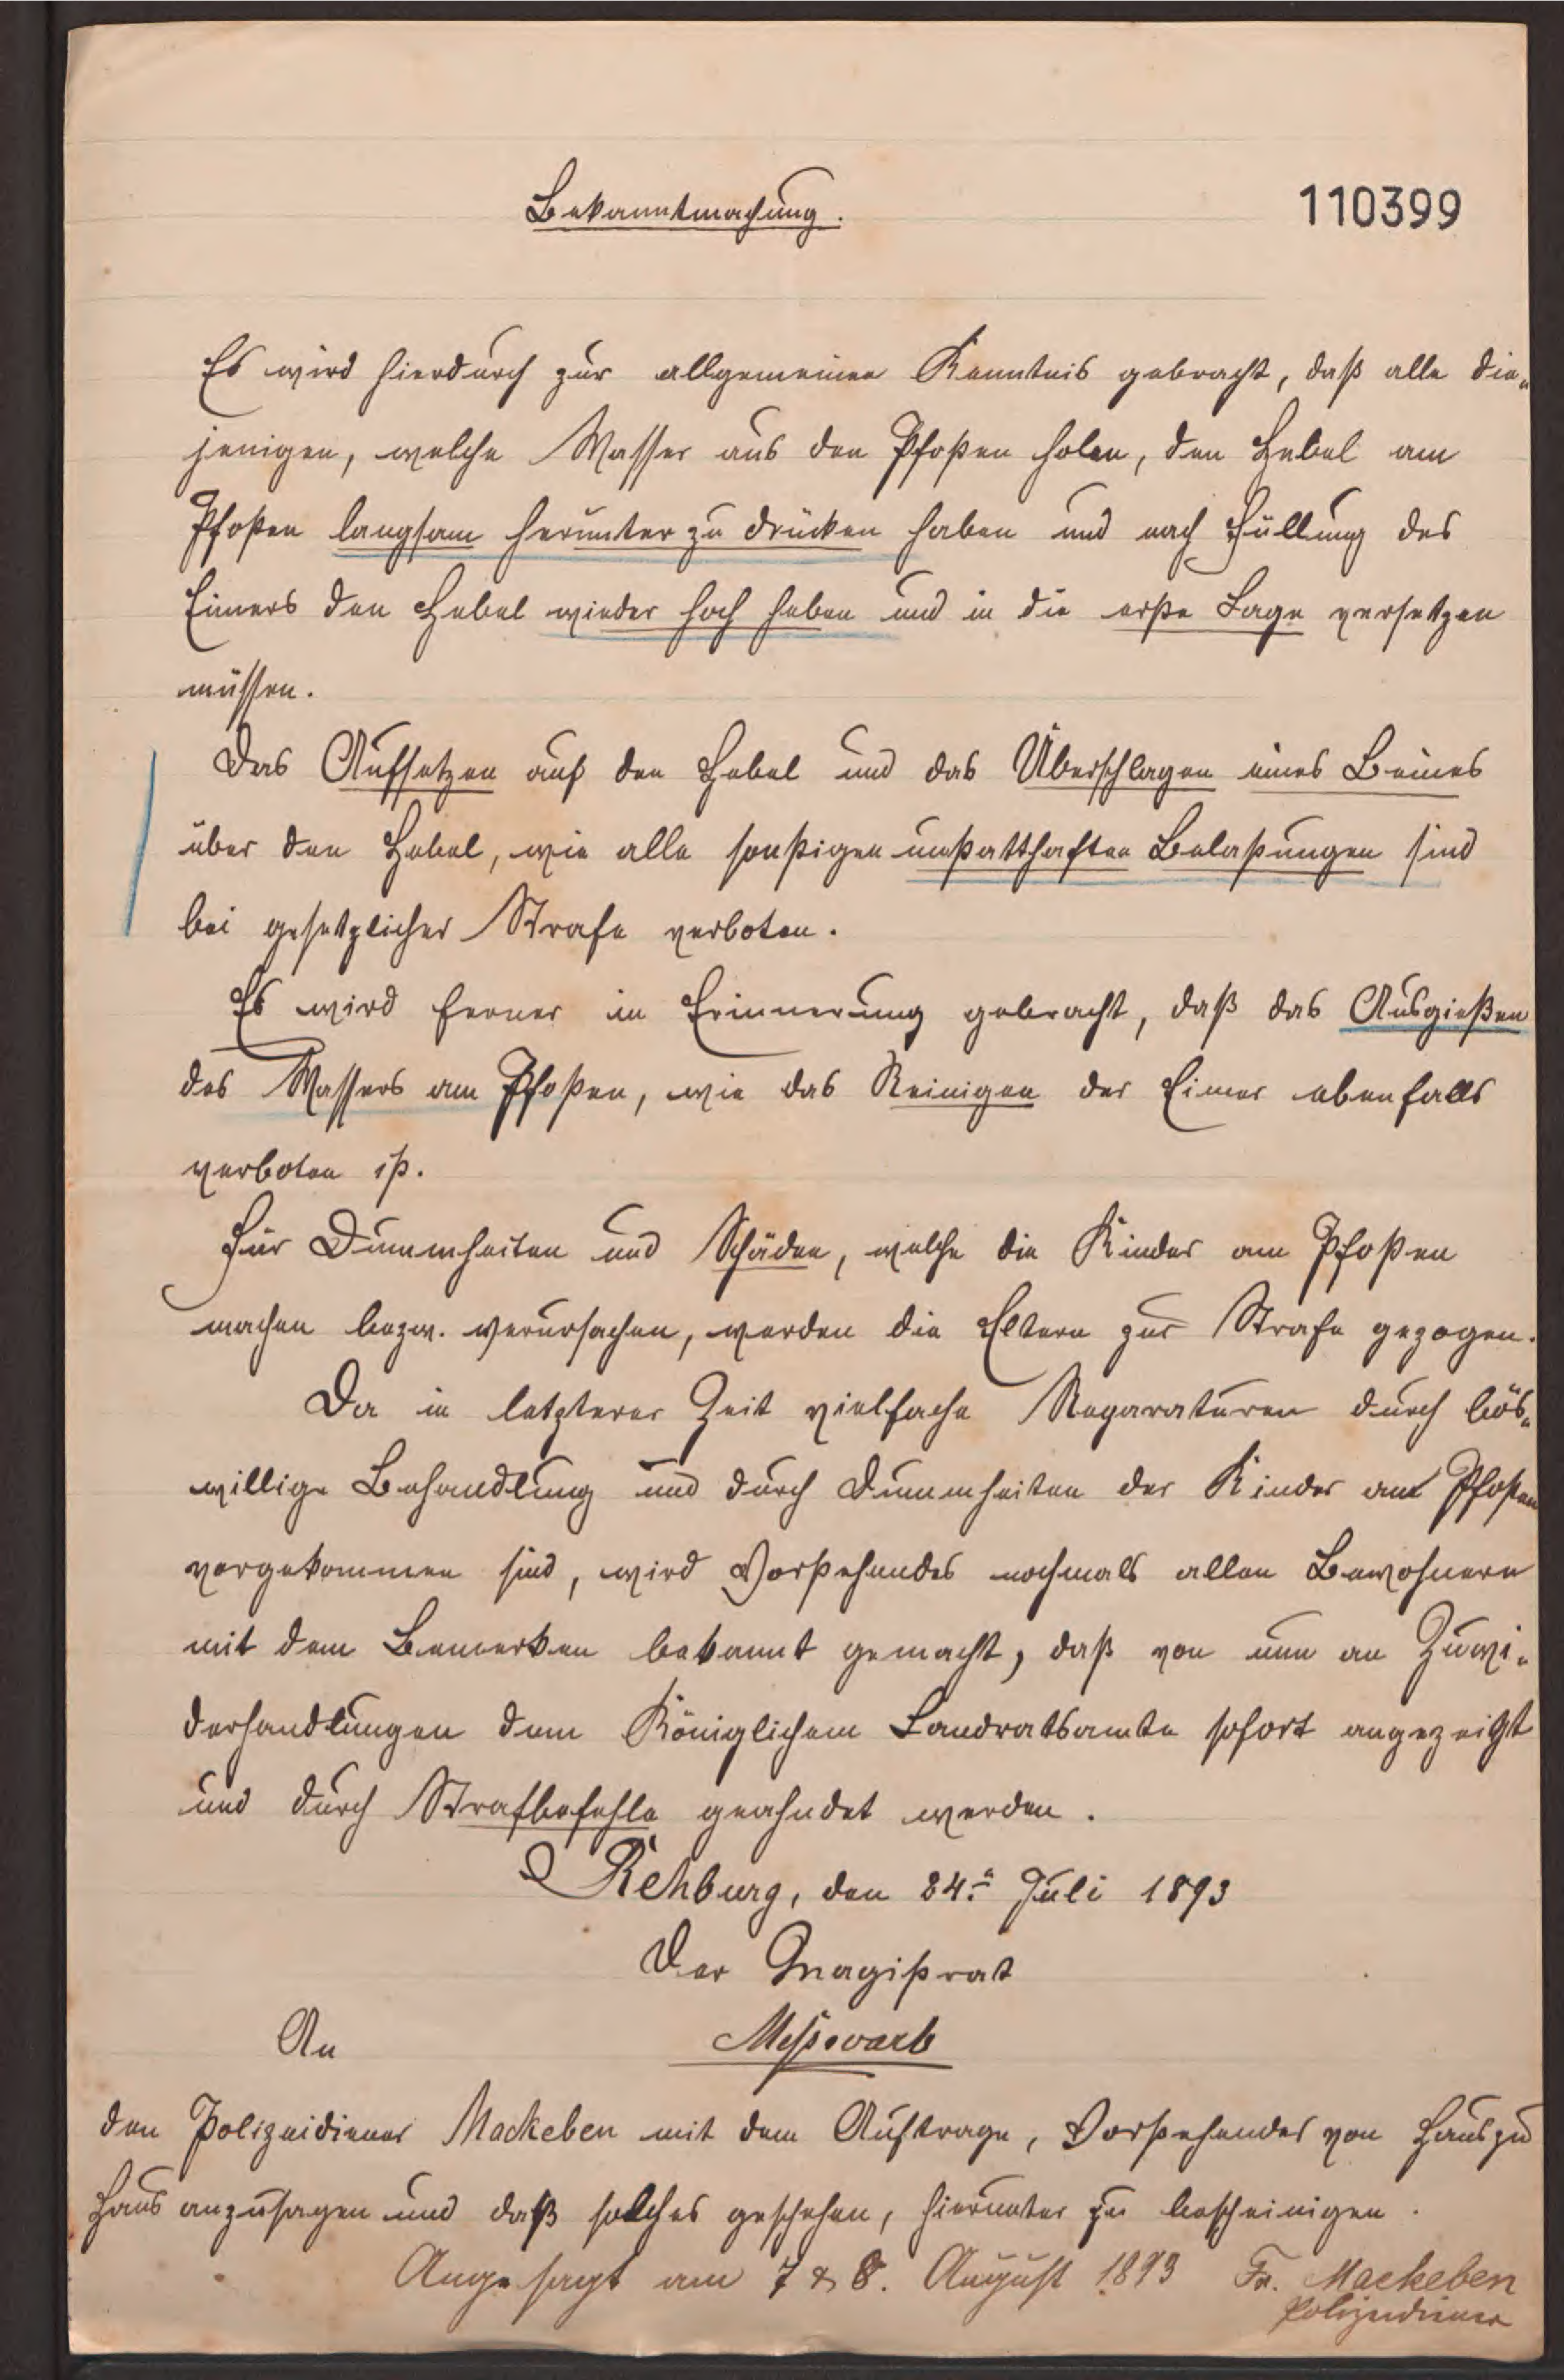 Bekanntmachung.
110399
Es wird hierdurch zur allgemeinen Kenntnis gebracht, daß alle die„
jenigen, welche Wasser aus den Pfosten holen, den Hebel am
Pfosten langsam herunter zu drücken haben und nach Füllung des
Eimers den Hebel wieder hoch heben und in die erste Lage versetzen
müssen.
Das Aufsetzen auf den Hebel und das Überschlagen eines Beines
über den Hebel, wie alle sonstigen unstatthaften Belastungen sind
bei gesetzlicher Strafe verboten.
Es wird ferner in Erinnerung gebracht, daß das Ausgießen
des Wassers am Pfosten, wie das Reinigen der Eimer ebenfalls
verboten ist.
Für Dummheiten und Schäden, welche die Kinder am Pfosten
machen bezw. verursachen, werden die Eltern zur Strafe gezogen.
Da in letzterer Zeit vielfache Reparaturen durch bös„
willige Behandlung und durch Dummheiten der Kinder am Pfosten
vorgekommen sind, wird Vorstehendes nochmals allen Bewohnern
mit dem Bemerken bekannt gemacht, daß von nun an Zuwi„
derhandlungen dem Königlichem Landratsamte sofort angezeigt
und durch Strafbefehle geahndet werden.
Rehburg, den 24. Juli 1893
Der Magistrat
Meßwarb
An
den Polizeidiener Mackeben mit dem Auftrage, Vorstehendes von Haus zu
Haus anzusagen und daß solches geschehen, hierunter zu bescheinigen.
Angesagt am 7 & 8. August 1893 Fr. Mackeben
Polizeidiener